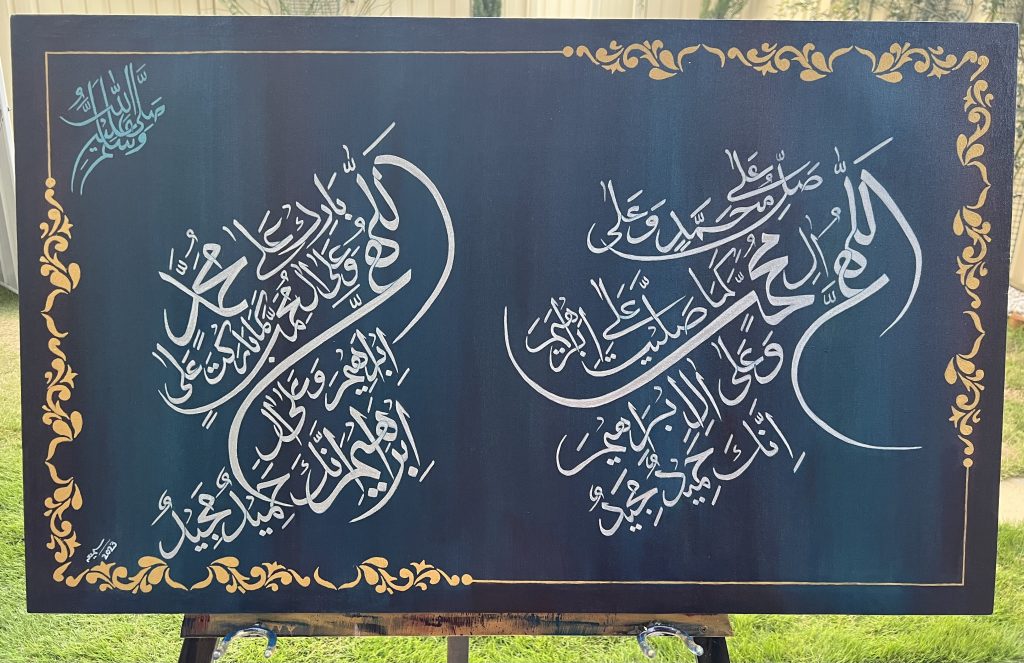 صَلَّى اللهُ عَلَيْهِ وَسَلَّمَ
اللَّهُمَّ صَلِّ عَلَى مُحَمَّدٍ وَعَلَى
اٰلِ مُحَمَّدٍ كَمَا صَلَّيْتَ عَلَى اِبْرَاهِيْمَ
وَعَلَى اٰلِ اِبْرَاهِيْمَ
اِنَّكَ حَمِيْدٌ مَّجِيْدٌ
اللَّهُمَّ بَارِكْ عَلَى مُحَمَّدٍ
وَعَلَى اٰلِ مُحَمَّدٍ كَمَا بَارَكْتَ عَلَى
اِبْرَاهِيْمَ وَعَلَى اٰلِ
اِبْرَاهِيْمَ اِنَّكَ حَمِيْدٌ مَّجِيْدٌ
2023